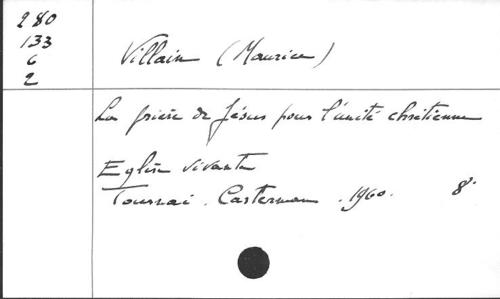 280
133
6
2
Villain (Maurice)
La prière de Jésus pour l'unité chrétienne
Eglise vivante
Tournai. Casterman. 1960. 8°